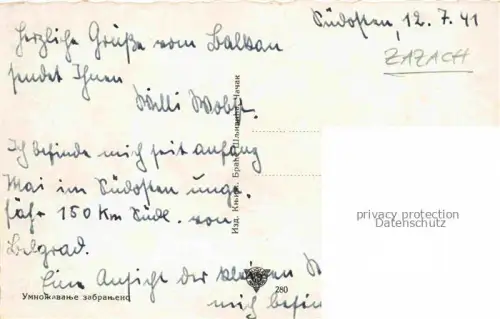 Südosten, 12. 7. 41
ZAZACH
Herzliche Grüße vom Balkan
sendet Ihnen
Willi Wobst.
Ich befinde mich seit anfang
Mai im Südosten unge-
fähr 150 Km Südl. von
Belgrad.
Eine Ansicht der kleinen
mich befin
Изд. Књиж. Браће Чачак
privacy protection
Datenschutz
Умножавање забрањено
280